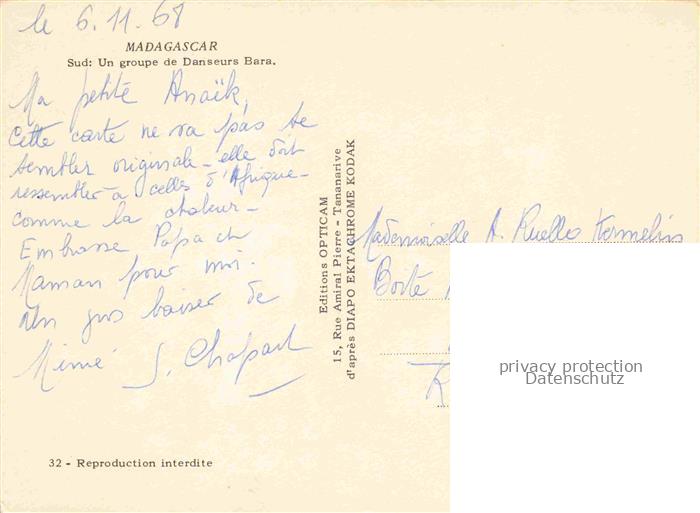 le 6.11.68
MADAGASCAR
Sud: Un groupe de Danseurs Bara.
Ma petite Anaïk,
Cette carte ne va pas te
sembler originale - elle doit
ressembler à celles d'Afrique -
comme la chaleur -
Embrasse Papa et
Maman pour moi.
Un gros baiser de
Mimé S. Chapart
32 - Reproduction interdite
Editions OPTICAM
15, Rue Amiral Pierre - Tananarive
d'après DIAPO EKTACHROME KODAK
Mademoiselle A. Ruello Kermelin
Boîte
privacy protection
Datenschutz